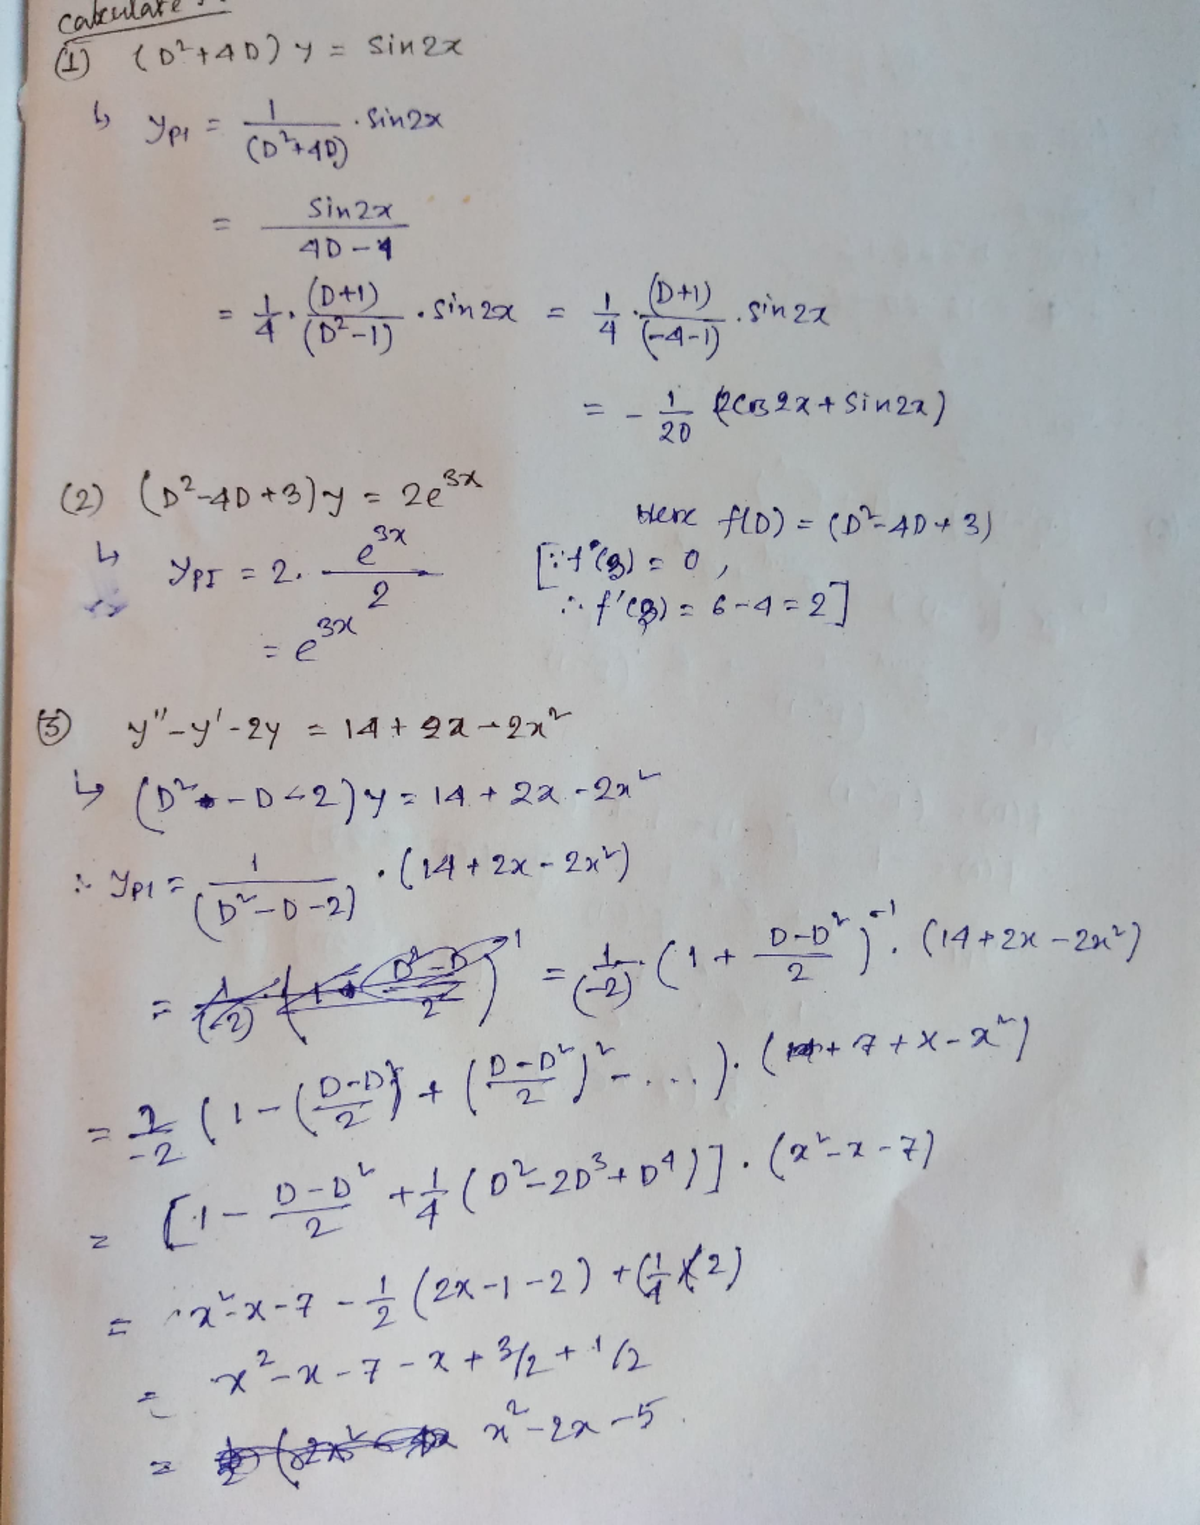 Calculate
(1) (D²+4D) y = Sin2x
↳ y_PI = 1/(D²+4D) · Sin2x
= Sin2x/(4D-4)
= 1/4 · (D+1)/(D²-1) · Sin2x = 1/4 · (D+1)/(-4-1) · Sin2x
= - 1/20 (2Cos2x + Sin2x)
(2) (D²-4D+3)y = 2e^3x
Here f(D) = (D²-4D+3)
↳ y_PI = 2. e^3x/2 [∵ f(3) = 0,
∴ f'(3) = 6-4 = 2]
= e^3x
(3) y''-y'-2y = 14+2x-2x²
↳ (D²-D-2)y = 14+2x-2x²
∴ y_PI = 1/(D²-D-2) · (14+2x-2x²)
= = 1/(-2) · (1 + (D-D²)/2)^-1 · (14+2x-2x²)
= 2/-2 (1 - ((D-D²)/2) + ((D-D²)/2)² - ....) · (7+x-x²)
= [1 - (D-D²)/2 + 1/4 (D²-2D³+D⁴)] · (x²-x-7)
= x²-x-7 - 1/2 (2x-1-2) + (1/4 × 2)
= x²-x-7-x+3/2+1/2
= x²-2x-5.